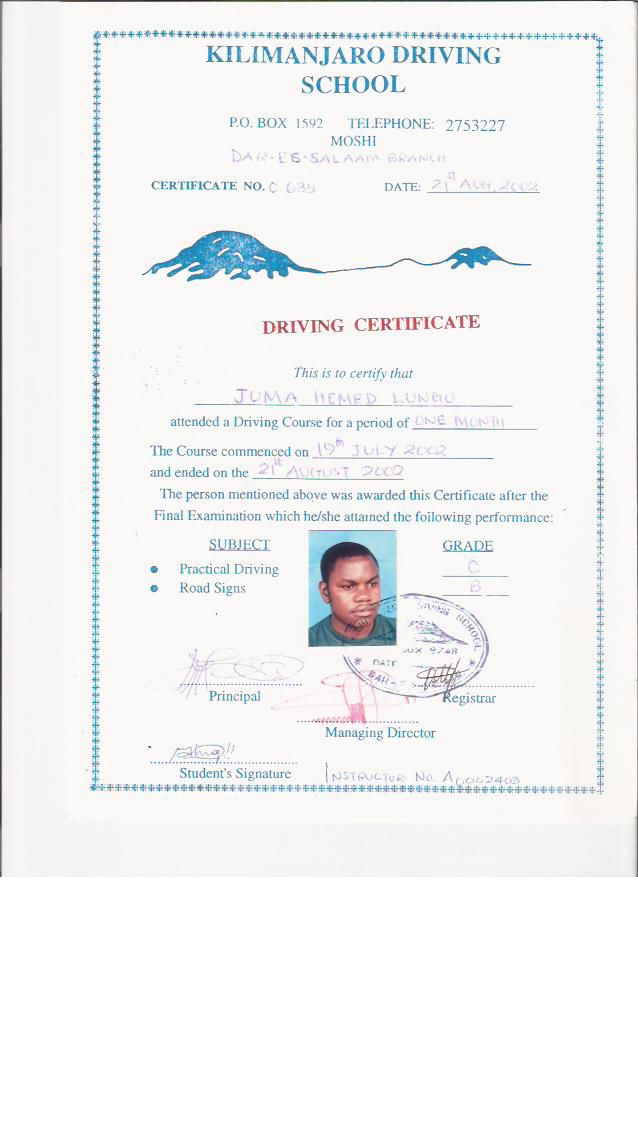 KILIMANJARO DRIVING
SCHOOL
P.O. BOX 1592 TELEPHONE: 2753227
MOSHI
DAR-ES-SALAAM BRANCH
CERTIFICATE NO. C 635 DATE: 21st AUG, 2002
DRIVING CERTIFICATE
This is to certify that
JUMA HEMED LUNGO
attended a Driving Course for a period of ONE MONTH
The Course commenced on 19th JULY 2002
and ended on the 21st AUGUST 2002
The person mentioned above was awarded this Certificate after the
Final Examination which he/she attained the following performance:
SUBJECT GRADE
Practical Driving C
Road Signs B
DRIVING SCHOOL
DATE
Principal
Registrar
Managing Director
Student's Signature
INSTRUCTOR NO. A0062403